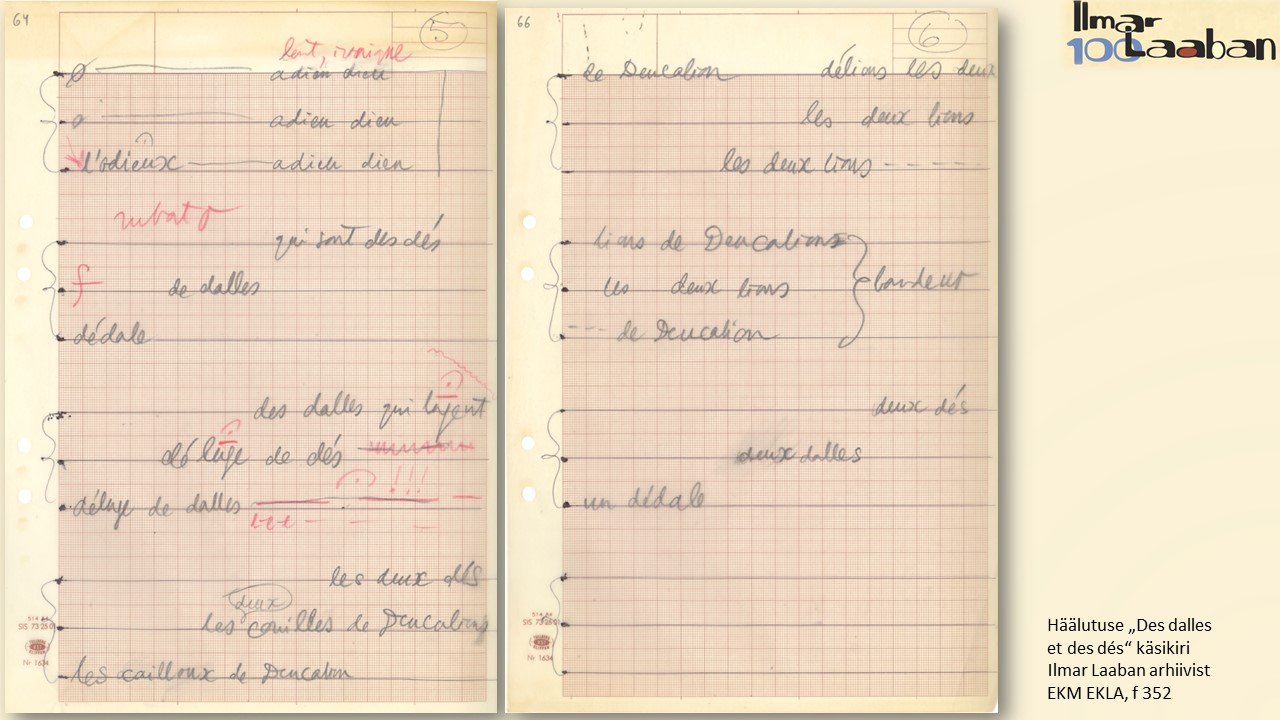 64
5
lent, ironique
ø adieu dieu
ø adieu dieu
l'odieux adieu dieu
rubato
qui sont des dés
f de dalles
dédale
des dalles qui logent
déluge de dés
déluge de dalles
!!!
les deux dés
deux
les couilles de Deucalion
les cailloux de Deucalion
514 84
SIS 73 25 01
Nr 1634
66
6
de Deucalion délions les deux
les deux lions
les deux lions - - - - -
lions de Deucalions
les deux lions
--- de Deucalion
deux dés
deux dalles
un dédale
514 84
SIS 73 25 01
Nr 1634
Ilmar
100 Laaban
Häälutuse „Des dalles
et des dés“ käsikiri
Ilmar Laaban arhiivist
EKM EKLA, f 352